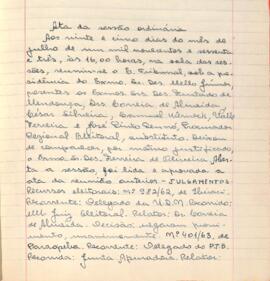 Ata da sessão ordinária
Aos vinte e cinco dias do mês de
julho de um mil novecentos e sessenta
e três, às 16,00 horas, na sala das ses-
sões, reuniu-se o E. Tribunal, sob a pre-
sidência do Exmo. Sr. Des. Mello Júnior,
presentes os Exmos. Srs. Des.
Mendonça, Drs. Correia de Almeida,
César Silveira,
Ferreira e José Procurador
Regional Eleitoral, substituto. Deixou
de comparecer, por motivo justificado,
o Exmo. Sr. Des. Ferreira de Oliveira. Aber-
ta a sessão, foi lida e aprovada a
ata da reunião anterior - JULGAMENTOS:
Recursos eleitorais: nº 382/62, de
Recorrente: Delegado da U.D.N. Recorrido:
MM. Juiz Eleitoral. Relator: Dr. Correia
de Almeida. Decisão: negaram provi-
mento, Nº 401/63, de
Paraopeba. Recorrente: Delegado do P.T.B.
Recorrida: Junta Apuradora. Relator: